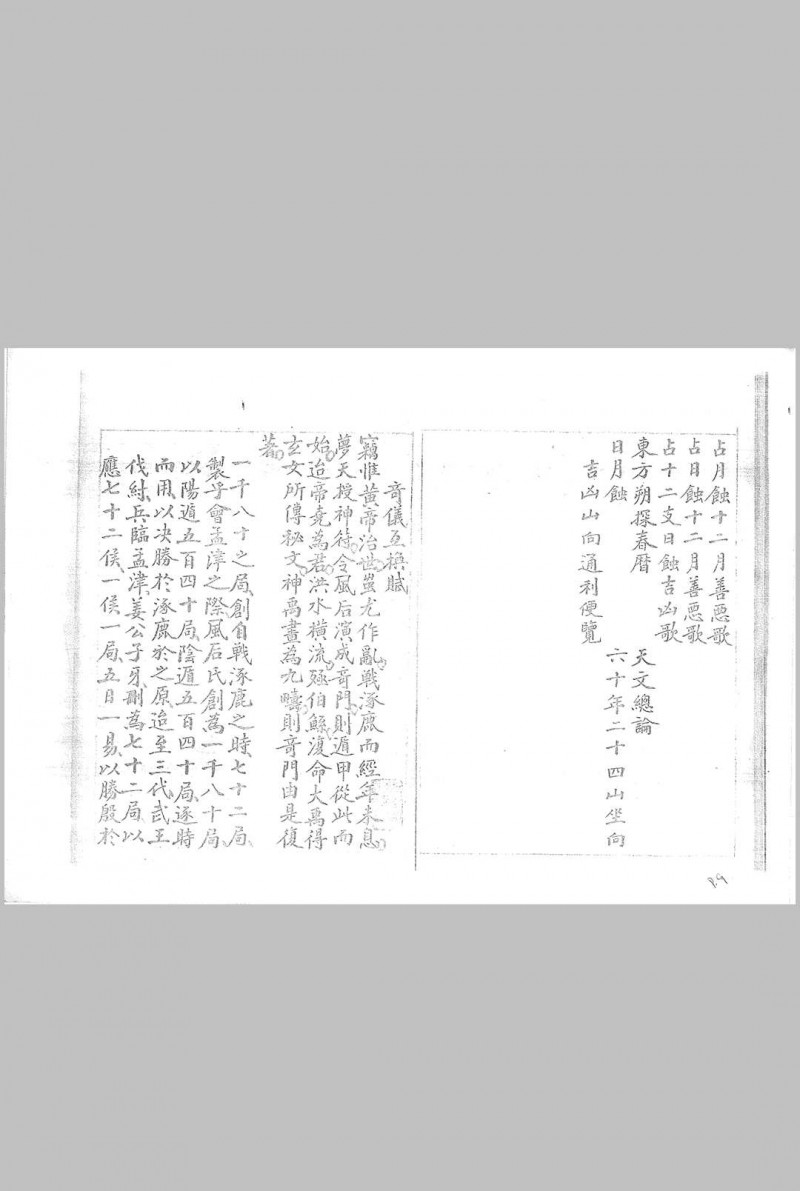 占月蝕十二月善惡歌
占日蝕十二月善惡歌
占十二支日蝕吉凶歌
東方朔探春曆 天文總論
日月蝕 六十年二十四山坐向
吉凶山向通利便覽
奇儀互換賦
竊惟黃帝治世蚩尤作亂戰涿鹿而經年未息
夢天授神符令風后演成奇門則遁甲從此而
始迨帝堯為君洪水橫流殛伯鯀復命大禹得
玄女所傳秘文神禹畫為九疇則奇門由是復
著
一千八十之局創自戰涿鹿之時七十二局
製乎會孟津之際風后氏創為一千八十局
以陽遁五百四十局陰遁五百四十局逐時
而用以決勝於涿鹿於之原迨至三代武王
伐紂兵臨孟津姜公子牙刪為七十二局以
應七十二侯一侯一局五日一易以勝殷於
P.9